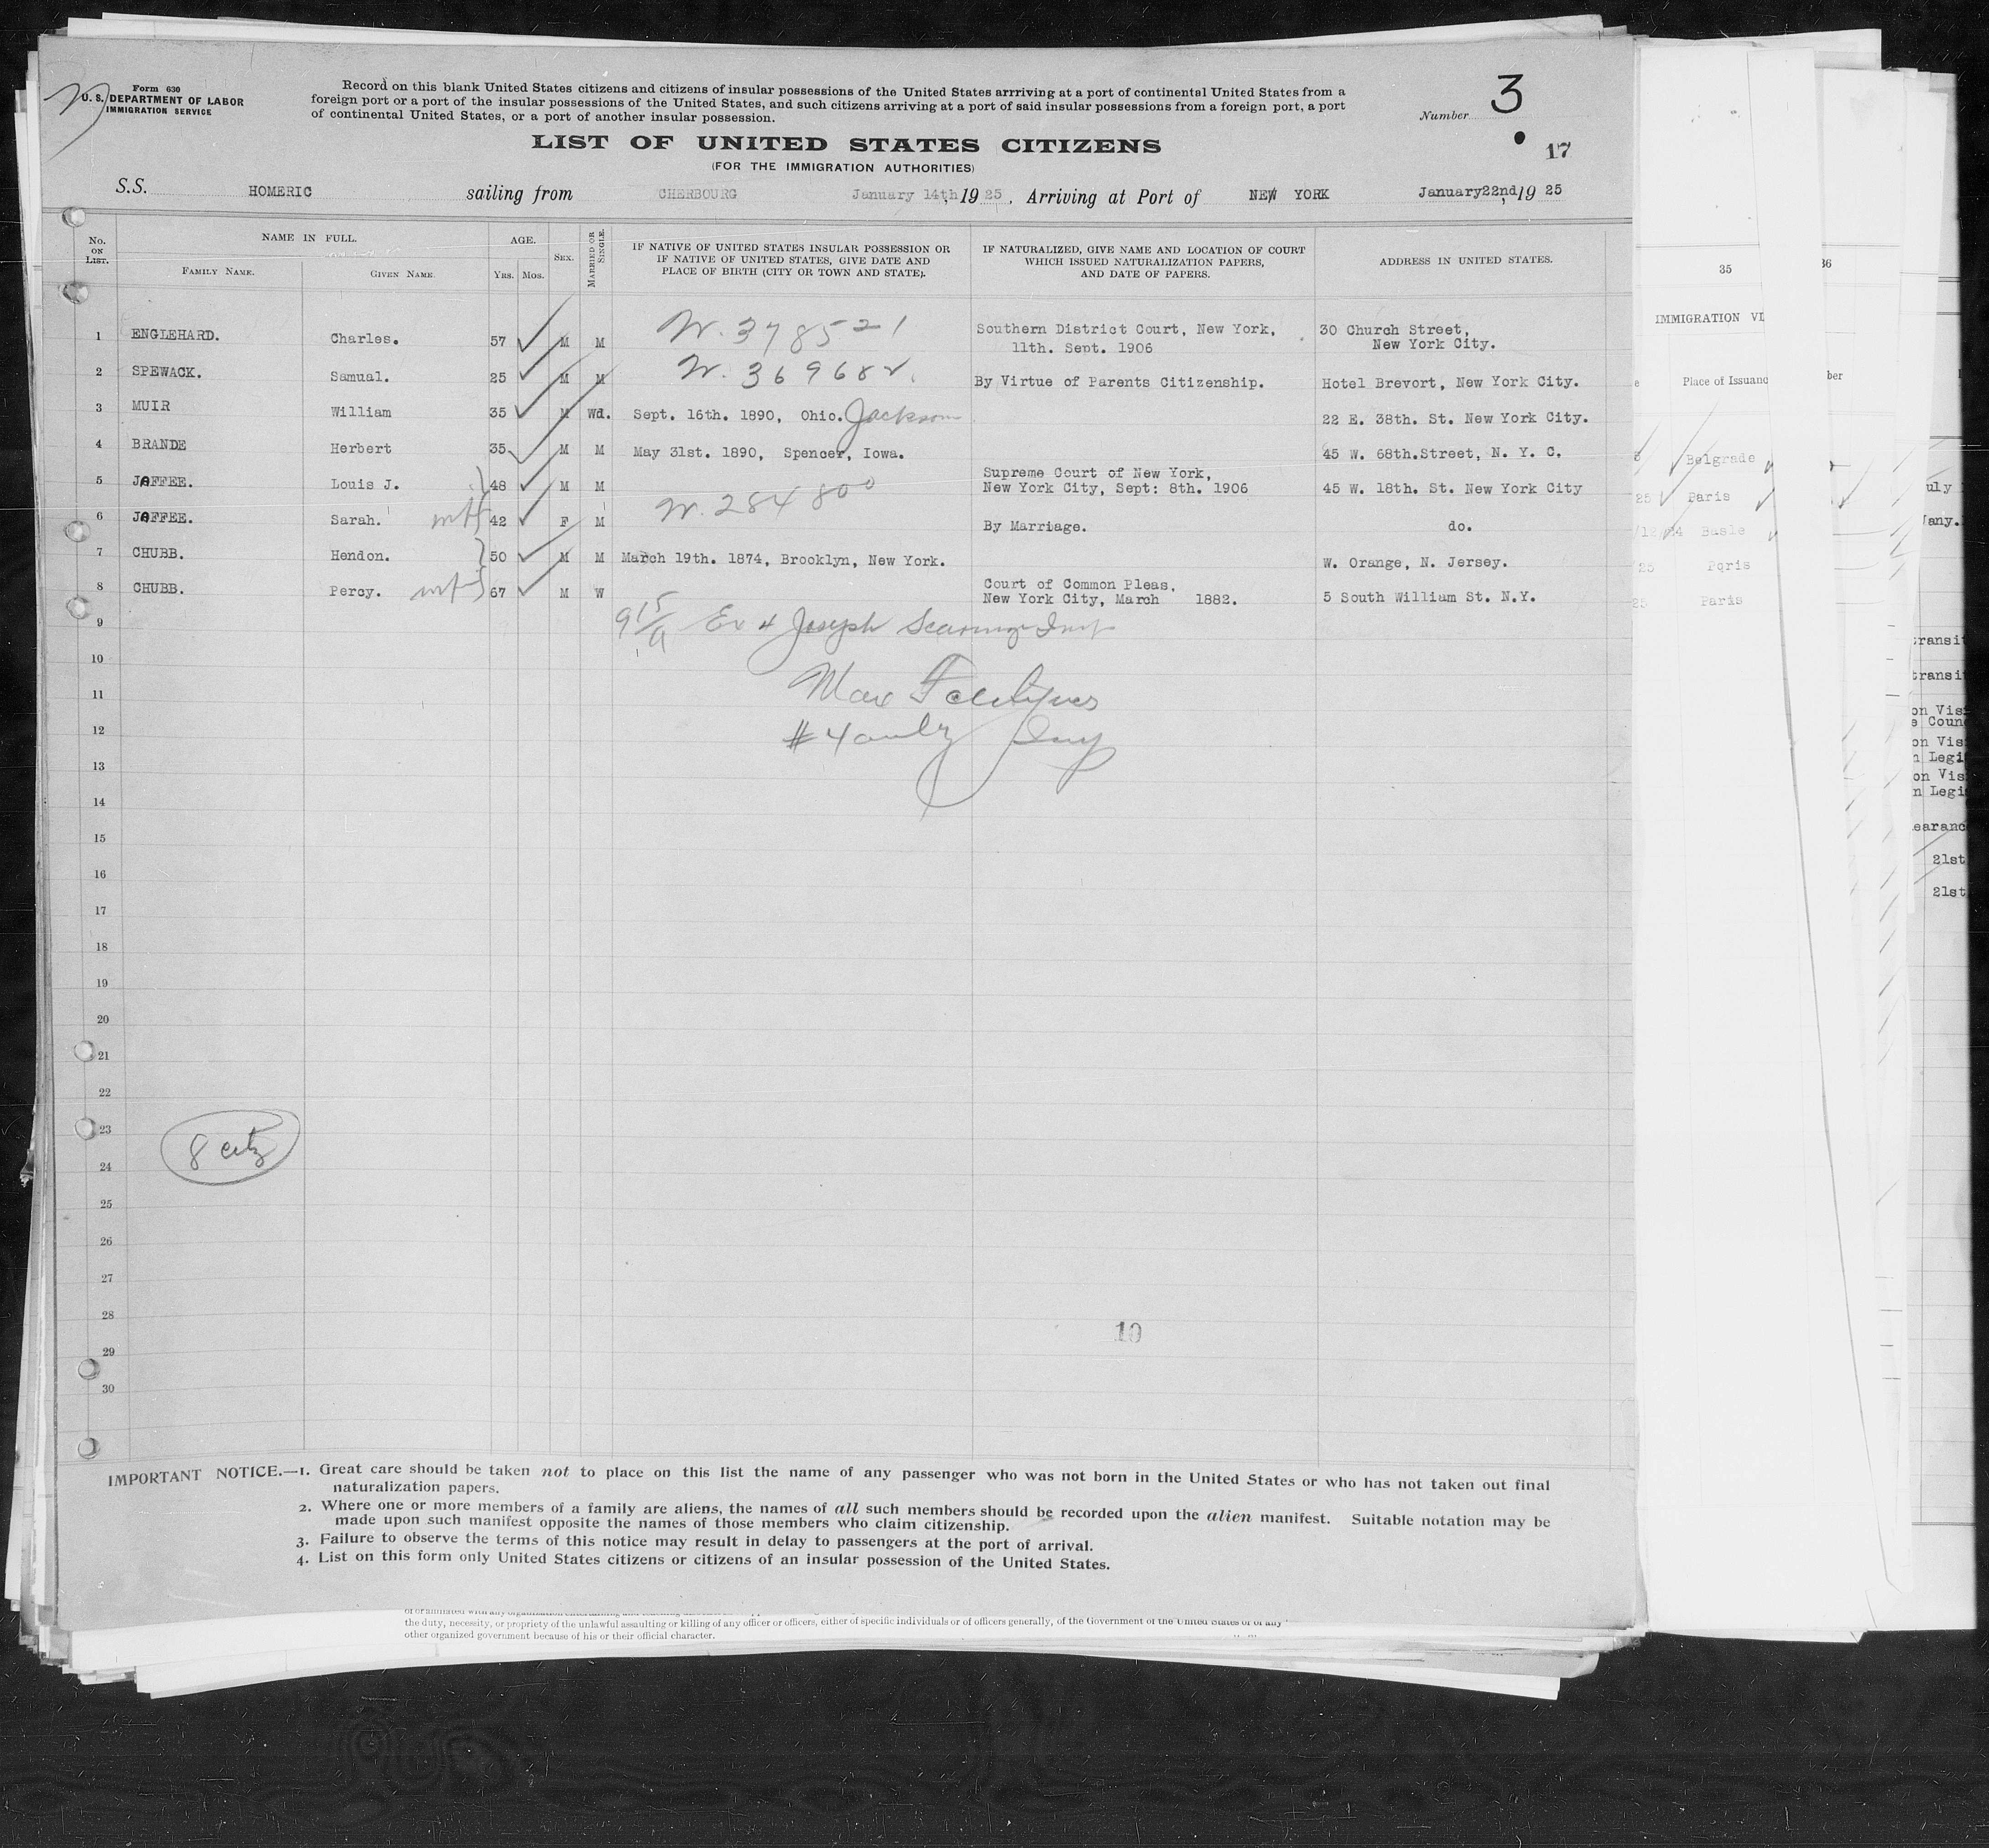 Form 630
U. S. DEPARTMENT OF LABOR
IMMIGRATION SERVICE
Record on this blank United States citizens and citizens of insular possessions of the United States arrriving at a port of continental United States from a
foreign port or a port of the insular possessions of the United States, and such citizens arriving at a port of said insular possessions from a foreign port, a port
of continental United States, or a port of another insular possession.
Number 3
17
LIST OF UNITED STATES CITIZENS
(FOR THE IMMIGRATION AUTHORITIES)
S.S. HOMERIC sailing from CHERBOURG January 14th, 1925, Arriving at Port of NEW YORK January22nd, 1925
No. ON LIST. NAME IN FULL. AGE. SEX. MARRIED OR SINGLE. IF NATIVE OF UNITED STATES INSULAR POSSESSION OR IF NATIVE OF UNITED STATES, GIVE DATE AND PLACE OF BIRTH (CITY OR TOWN AND STATE). IF NATURALIZED, GIVE NAME AND LOCATION OF COURT WHICH ISSUED NATURALIZATION PAPERS, AND DATE OF PAPERS. ADDRESS IN UNITED STATES.
FAMILY NAME. GIVEN NAME Yrs. Mos.
1 ENGLEHARD. Charles. 57 M M N. 378521 Southern District Court, New York, 11th. Sept. 1906 30 Church Street, New York City.
2 SPEWACK. Samual. 25 M M N. 369682 By Virtue of Parents Citizenship. Hotel Brevort, New York City.
3 MUIR William 35 M Wd. Sept. 16th. 1890, Ohio. Jackson 22 E. 38th. St. New York City.
4 BRANDE Herbert 35 M M May 31st. 1890, Spencer, Iowa. 45 W. 68th.Street, N. Y. C.
5 JAFFEE. Louis J. 48 M M Supreme Court of New York, New York City, Sept: 8th. 1906 45 W. 18th. St. New York City
6 JAFFEE. Sarah. 42 F M N. 284800 By Marriage. do.
7 CHUBB. Hendon. 50 M M March 19th. 1874, Brooklyn, New York. W. Orange, N. Jersey.
8 CHUBB. Percy. 67 M W Court of Common Pleas, New York City, March 1882. 5 South William St. N.Y.
9 Ex 4 Joseph
10
11 Max
12 #4 only
13
14
15
16
17
18
19
20
21
22
23
8 citz
24
25
26
27
28
10
29
30
IMPORTANT NOTICE.—1. Great care should be taken not to place on this list the name of any passenger who was not born in the United States or who has not taken out final
naturalization papers.
2. Where one or more members of a family are aliens, the names of all such members should be recorded upon the alien manifest. Suitable notation may be
made upon such manifest opposite the names of those members who claim citizenship.
3. Failure to observe the terms of this notice may result in delay to passengers at the port of arrival.
4. List on this form only United States citizens or citizens of an insular possession of the United States.
the duty, necessity, or propriety of the unlawful assaulting or killing of any officer or officers, either of specific individuals or of officers generally, of the Government of the United States or of any
other organized government because of his or their official character.
35
36
IMMIGRATION VI
Place of Issuanc
ber
Belgrade
25 Paris
/12/24 Basle
25 Paris
25 Paris
uly
any.
ransit
transit
on Vis
e Coun
on Vis
n Legi
on Vis
n Legi
earanc
21st
21st